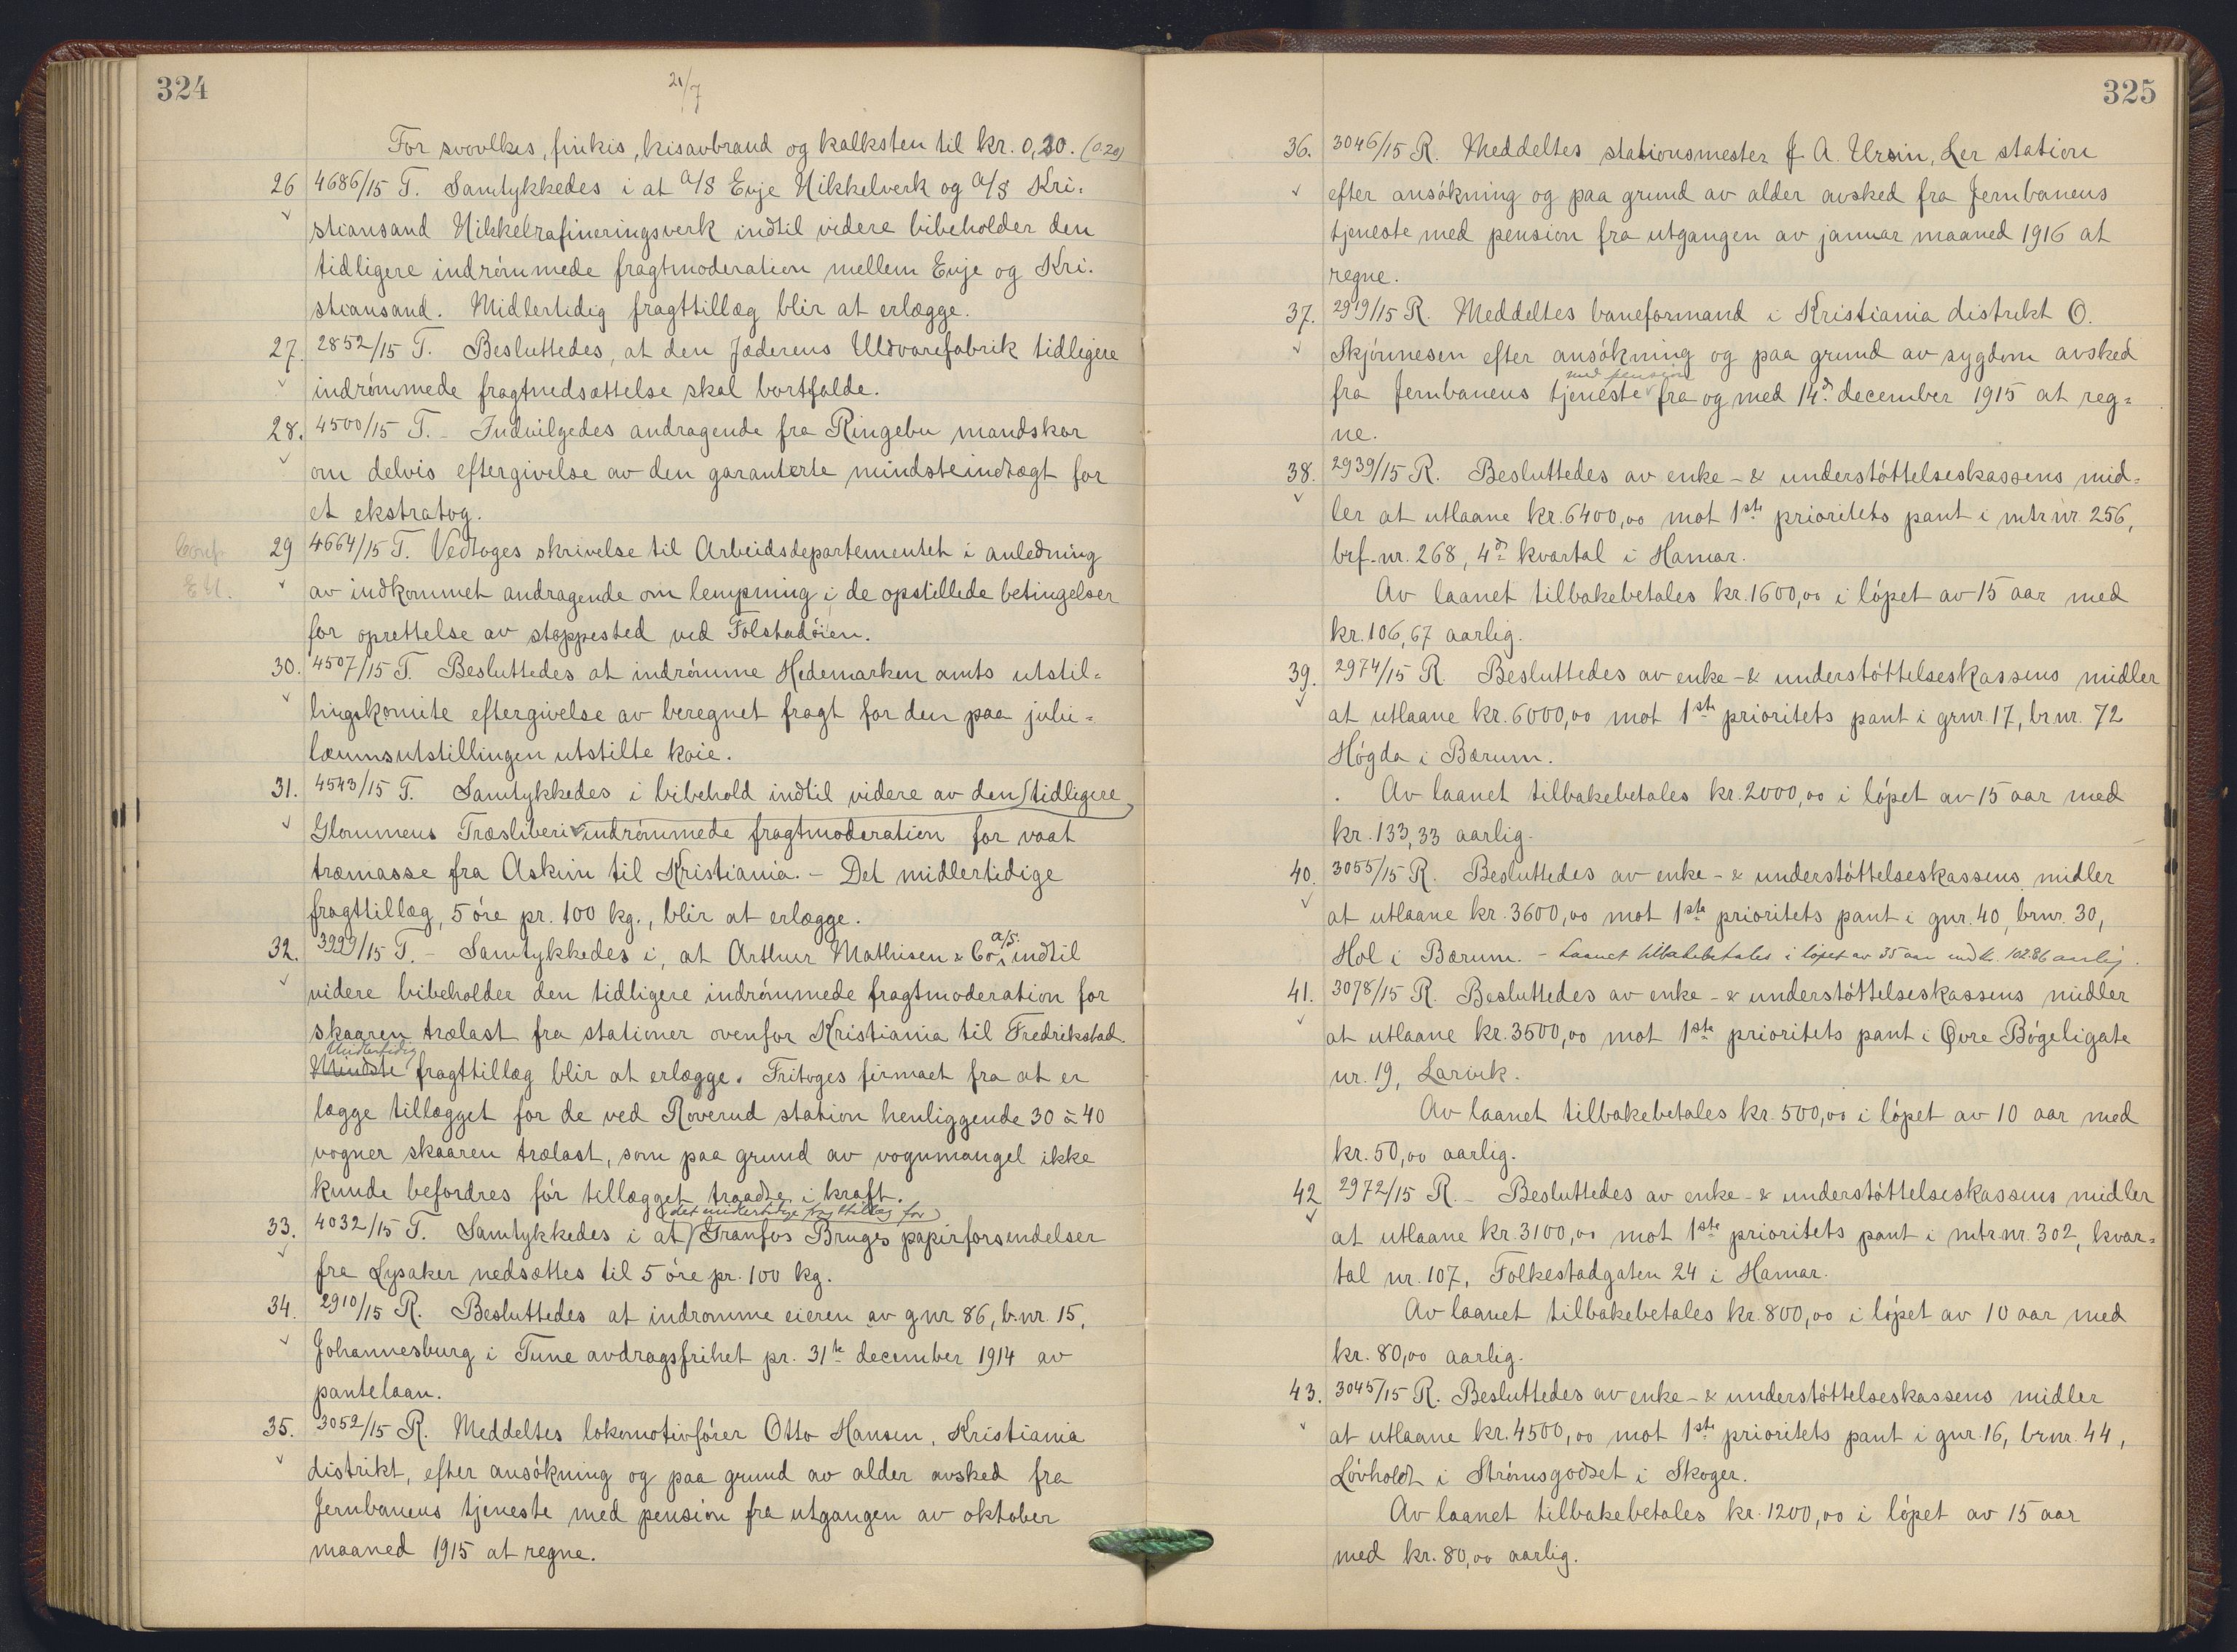 324
21/7
For svovlkis, finkis, kisavbrand og kalksten til kr. 0,20. (0.20)
26 4686/15 T. Samtykkedes i at A/S Evje Nikkelverk og A/S Kri-
stiansand Nikkelrafineringsverk indtil videre bibeholder den
tidligere indrømmede fragtmoderation mellem Evje og Kri-
stiansand. Midlertidig fragttillæg blir at erlægge.
27. 2852/15 T. Besluttedes, at den Jæderens Uldvarefabrik tidligere
indrømmede fragtnedsættelse skal bortfalde.
28. 4500/15 T. - Indvilgedes andragende fra Ringebu mandskor
om delvis eftergivelse av den garanterte mindsteindtægt for
et ekstratog.
29 4664/15 T. Vedtoges skrivelse til Arbeidsdepartementet i anledning
av indkommet andragende om lempning i de opstillede betingelser
for oprettelse av stoppested ved Folstadøien.
30. 4507/15 T. Besluttedes at indrømme Hedemarken amts utstil-
lingskomite eftergivelse av beregnet fragt for den paa jubi-
læumsutstillingen utstilte koie.
31. 4543/15 T. Samtykkedes i bibehold indtil videre av den tidligere
Glommens Træsliberi indrømmede fragtmoderation for vaat
træmasse fra Askim til Kristiania. - Det midlertidige
fragttillæg, 5 øre pr. 100 kg., blir at erlægge.
32. 3999/15 T. - Samtykkedes i, at Arthur Mathisen & Co. A/S. indtil
videre bibeholder den tidligere indrømmede fragtmoderation for
skaaren trælast fra stationer ovenfor Kristiania til Fredrikstad.
Midlertidig
Mindste fragttillæg blir at erlægge. Fritoges firmaet fra at er
lægge tillægget for de ved Roverud station henliggende 30 à 40
vogner skaaren trælast, som paa grund av vognmangel ikke
kunde befordres før tillægget traadte i kraft.
det midlertidige fragttillæg for
33. 4032/15 T. Samtykkedes i at Granfos Bruges papirforsendelser
fra Lysaker nedsættes til 5 øre pr. 100 kg.
34. 2910/15 R. Besluttedes at indrømme eieren av gnr 86, b.nr. 15,
Johannesburg i Tune avdragsfrihet pr. 31te december 1914 av
pantelaan.
35. 3052/15 R. Meddeltes lokomotivfører Otto Hansen, Kristiania
distrikt, efter ansøkning og paa grund av alder avsked fra
Jernbanens tjeneste med pension fra utgangen av oktober
maaned 1915 at regne.
325
36. 3046/15 R. Meddeltes stationsmester J. A. Ursin, Ler station
efter ansøkning og paa grund av alder avsked fra Jernbanens
tjeneste med pension fra utgangen av januar maaned 1916 at
regne.
37. 2919/15 R. Meddeltes baneformand i Kristiania distrikt O.
Skjønnesen efter ansøkning og paa grund av sygdom avsked
med pension
fra Jernbanens tjeneste fra og med 14d. december 1915 at reg-
ne.
38. 2939/15 R. Besluttedes av enke- & understøttelseskassens mid-
ler at utlaane kr. 6400,00 mot 1ste prioritets pant i mtr nr. 256,
brf. nr. 268, 4d kvartal i Hamar.
Av laanet tilbakebetales kr. 1600,00 i løpet av 15 aar med
kr. 106,67 aarlig.
39. 2974/15 R. Besluttedes av enke- & understøttelseskassens midler
at utlaane kr. 6000,00 mot 1ste prioritets pant i grnr. 17, brnr. 72
Høgda i Bærum.
Av laanet tilbakebetales kr. 2000,00 i løpet av 15 aar med
kr. 133,33 aarlig.
40. 3055/15 R. Besluttedes av enke- & understøttelseskassens midler
at utlaane kr. 3600,00 mot 1ste prioritets pant i gnr. 40, brnr. 30,
Hol i Bærum. - Laanet tilbakebetales i løpet av 35 aar med kr. 102.86 aarlig.
41. 3078/15 R. Besluttedes av enke- & understøttelseskassens midler
at utlaane kr. 3500,00 mot 1ste prioritets pant i Øvre Bøgeligate
nr. 19, Larvik.
Av laanet tilbakebetales kr. 500,00 i løpet av 10 aar med
kr. 50,00 aarlig.
42 2972/15 R. - Besluttedes av enke- & understøttelseskassens midler
at utlaane kr. 3100,00 mot 1ste prioritets pant i mtr. nr. 302, kvar-
tal nr. 107, Folkestadgaten 24 i Hamar.
Av laanet tilbakebetales kr. 800,00 i løpet av 10 aar med
kr. 80,00 aarlig.
43. 3045/15 R. Besluttedes av enke- & understøttelseskassens midler
at utlaane kr. 4500,00 mot 1ste prioritets pant i gnr. 16, brnr. 44,
Løvholdt i Strømsgodset i Skoger.
Av laanet tilbakebetales kr. 1200,00 i løpet av 15 aar
med kr. 80,00 aarlig.